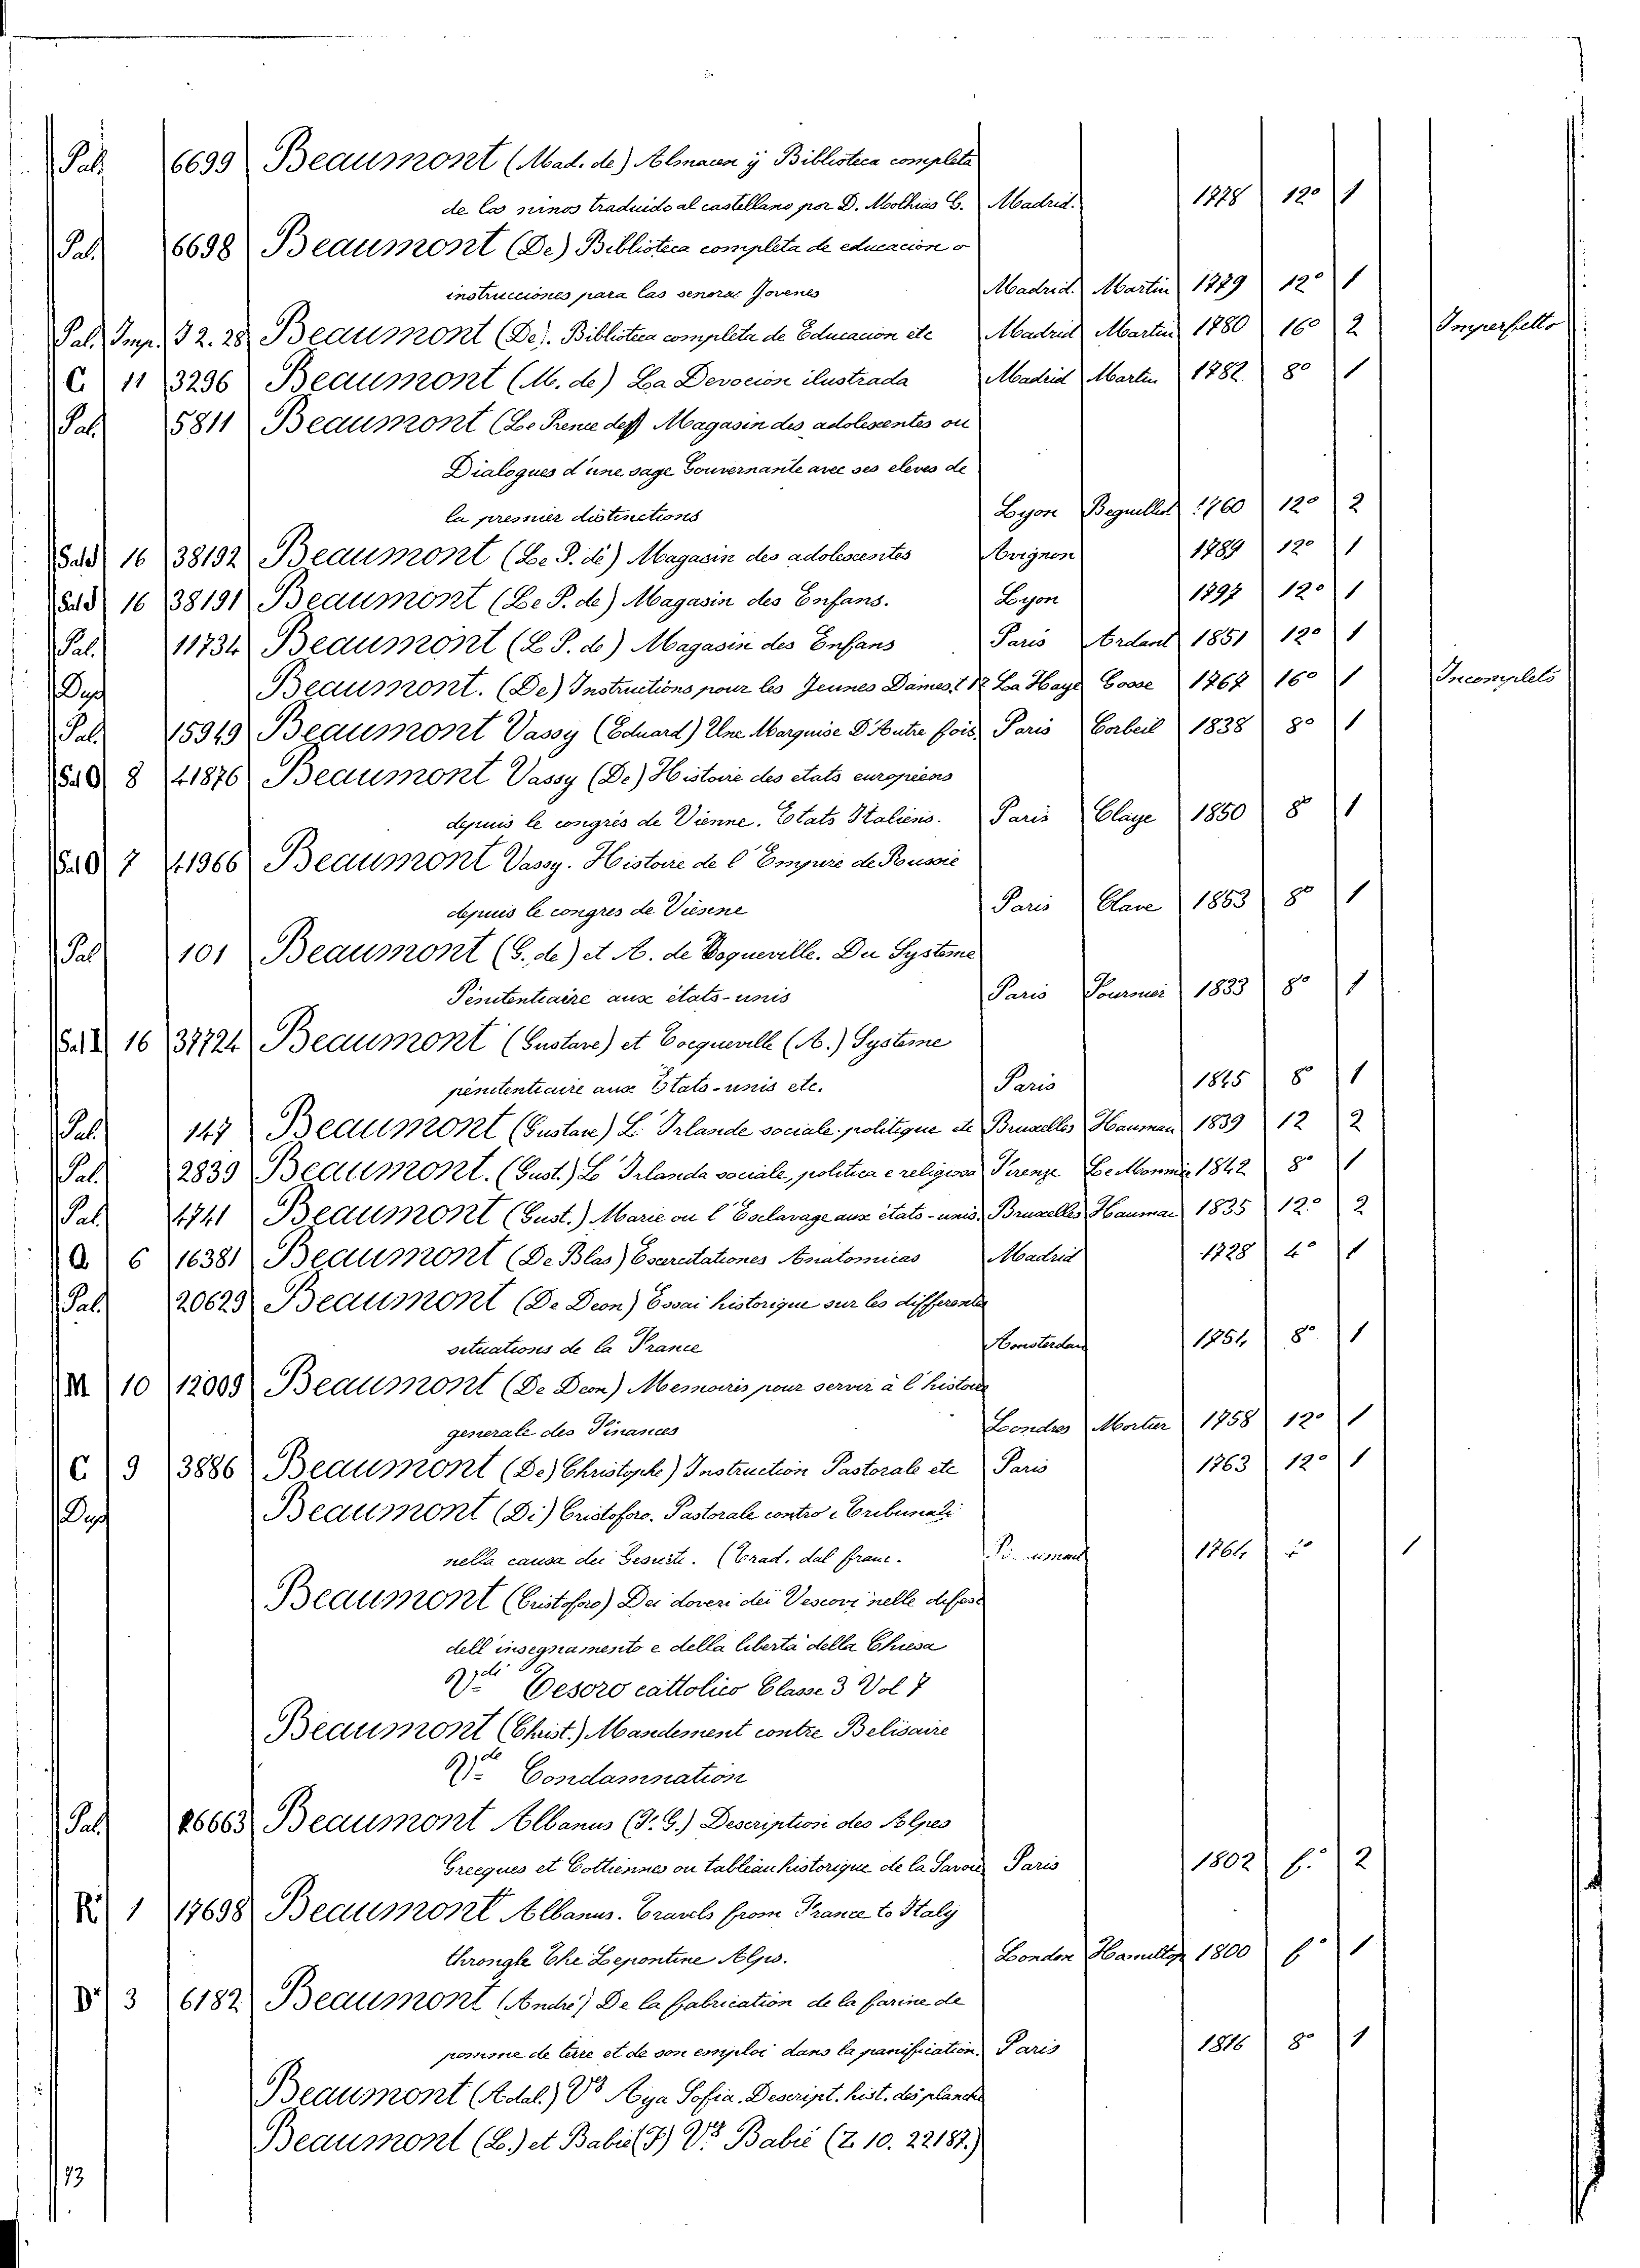 Pal. 6699 Beaumont (Mad. de) Almacen y Biblioteca completa
de los ninos traduido al castellano por D. Mothias G. Madrid. 1778 12º 1
Pal. 6698 Beaumont (De) Biblioteca completa de educacion o
instrucciones para las senoras Jovenes Madrid. Martin 1779 12º 1
Pal. Imp. 32. 28 Beaumont (De). Biblioteca completa de Educacion etc Madrid Martin 1780 16º 2 Imperfetto
C 11 3296 Beaumont (M. de) La Devocion ilustrada Madrid Martin 1782. 8º 1
Pal. 5811 Beaumont (Le Prence de) Magasin des adolescentes ou
Dialogues d'une sage Gouvernante avec ses eleves de
la premier distinctions Lyon 1760 12º 2
16 38192 Beaumont (Le P. de) Magasin des adolescentes Avignon 1789 12º 1
16 38191 Beaumont (Le P. de) Magasin des Enfans. Lyon 1797 12º 1
Pal. 11734 Beaumont (L P. de) Magasin des Enfans Paris Ardant 1851 12º 1
Dup Beaumont. (De) Instructions pour les Jeunes Dames, t 1º La Haye Gosse 1767 16º 1 Incompleto
Pal. 15949 Beaumont Vassy (Eduard) Une Marquise D'Autre fois. Paris Corbeil 1838 8º 1
8 41876 Beaumont Vassy (De) Histoire des etats européens
depuis le congrés de Vienne. Etats Italiens. Paris Claye 1850 8º 1
7 41966 Beaumont Vassy. Histoire de l'Empire de Roussie
depuis le congres de Vienne Paris Clave 1853 8º 1
Pal 101 Beaumont (G. de) et A. de Toqueville. Du Systeme
Penitentiaire aux états-unis Paris Fournier 1833 8º 1
16 37724 Beaumont (Gustave) et Tocqueville (A.) Systeme
pénitentiaire aux Etats-unis etc. Paris 1845 8º 1
Pal. 147 Beaumont (Gustave) L'Irlande sociale politique etc Bruxelles Hauman 1839 12 2
Pal. 2839 Beaumont. (Gust.) L'Irlanda sociale, politica e religiosa Firenze Le Monnier 1842 8º 1
Pal. 4741 Beaumont (Gust.) Marie ou l'Esclavage aux états-unis. Bruxelles Hauman 1835 12º 2
6 16381 Beaumont (De Blas) Exercitationes Anatomicas Madrid 1728 4º 1
Pal. 20629 Beaumont (De Deon) Essai historique sur les differentes
situations de la France Amsterdam 1754 8º 1
M 10 12009 Beaumont (De Deon) Memoiris pour servir à l'histoire
generale des Finances Londres Mortier 1758 12º 1
C 9 3886 Beaumont (De) Christophe) Instruction Pastorale etc Paris 1763 12º 1
Dup Beaumont (Di) Cristoforo. Pastorale contro i Tribunali
nella causa dei Gesuiti. (Trad. dal franc. 1764 1
Beaumont (Cristoforo) Dei doveri dei Vescovi nelle difese
dell'insegnamento e della liberta della Chiesa
Vdi Tesoro cattolico Classe 3 Vol 7
Beaumont (Christ.) Mandement contre Belisaire
Vde Condamnation
Pal. 26663 Beaumont Albanus (J. G.) Description des Alpes
Grecques et Cottiennes ou tableau historique de la Savoie Paris 1802 f.º 2
1 17698 Beaumont Albanus. Travels from France to Italy
throngle The Lepontine Alps. London Hamilton 1800 fº 1
3 6182 Beaumont (André) De la fabrication de la farine de
pomme de terre et de son emploi dans la panification. Paris 1816 8º 1
Beaumont (Adal.) Vs Aya Sofia. Descript. hist. des planche
Beaumont (L.) et Babié (F) Vs Babié (Z. 10. 22187.)